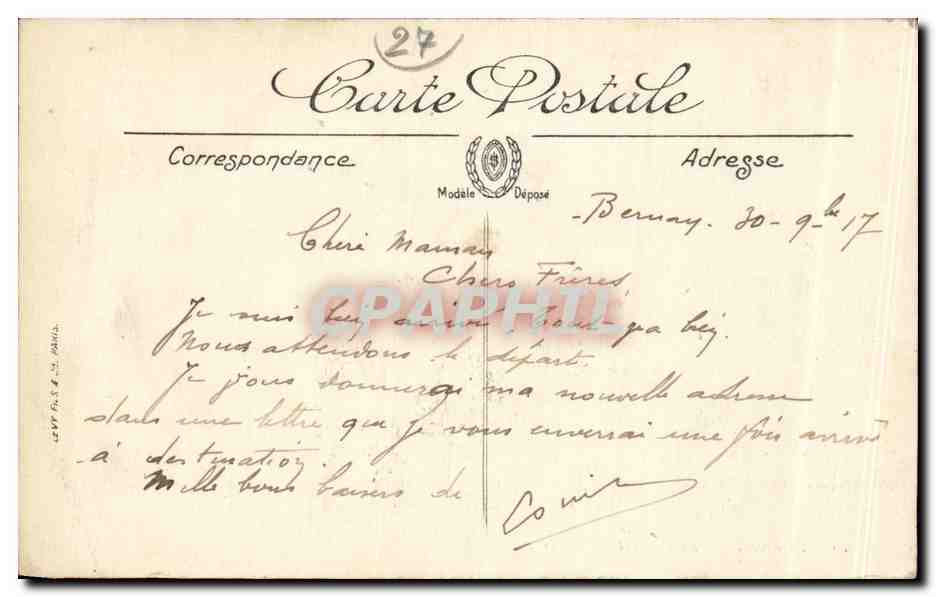 27
Carte Postale
Correspondance
Adresse
Modèle Déposé
- Bernay. 30 - 9bre 17
Chère Maman
Chers Frères,
CPAPHIL
Je suis bien arrivé, tout va bien.
Nous attendons le départ.
Je vous donnerai ma nouvelle adresse
dans une lettre que je vous enverrai une fois arrivé
à destination.
Mille bons baisers de
LEVY FILS & Cie, PARIS.